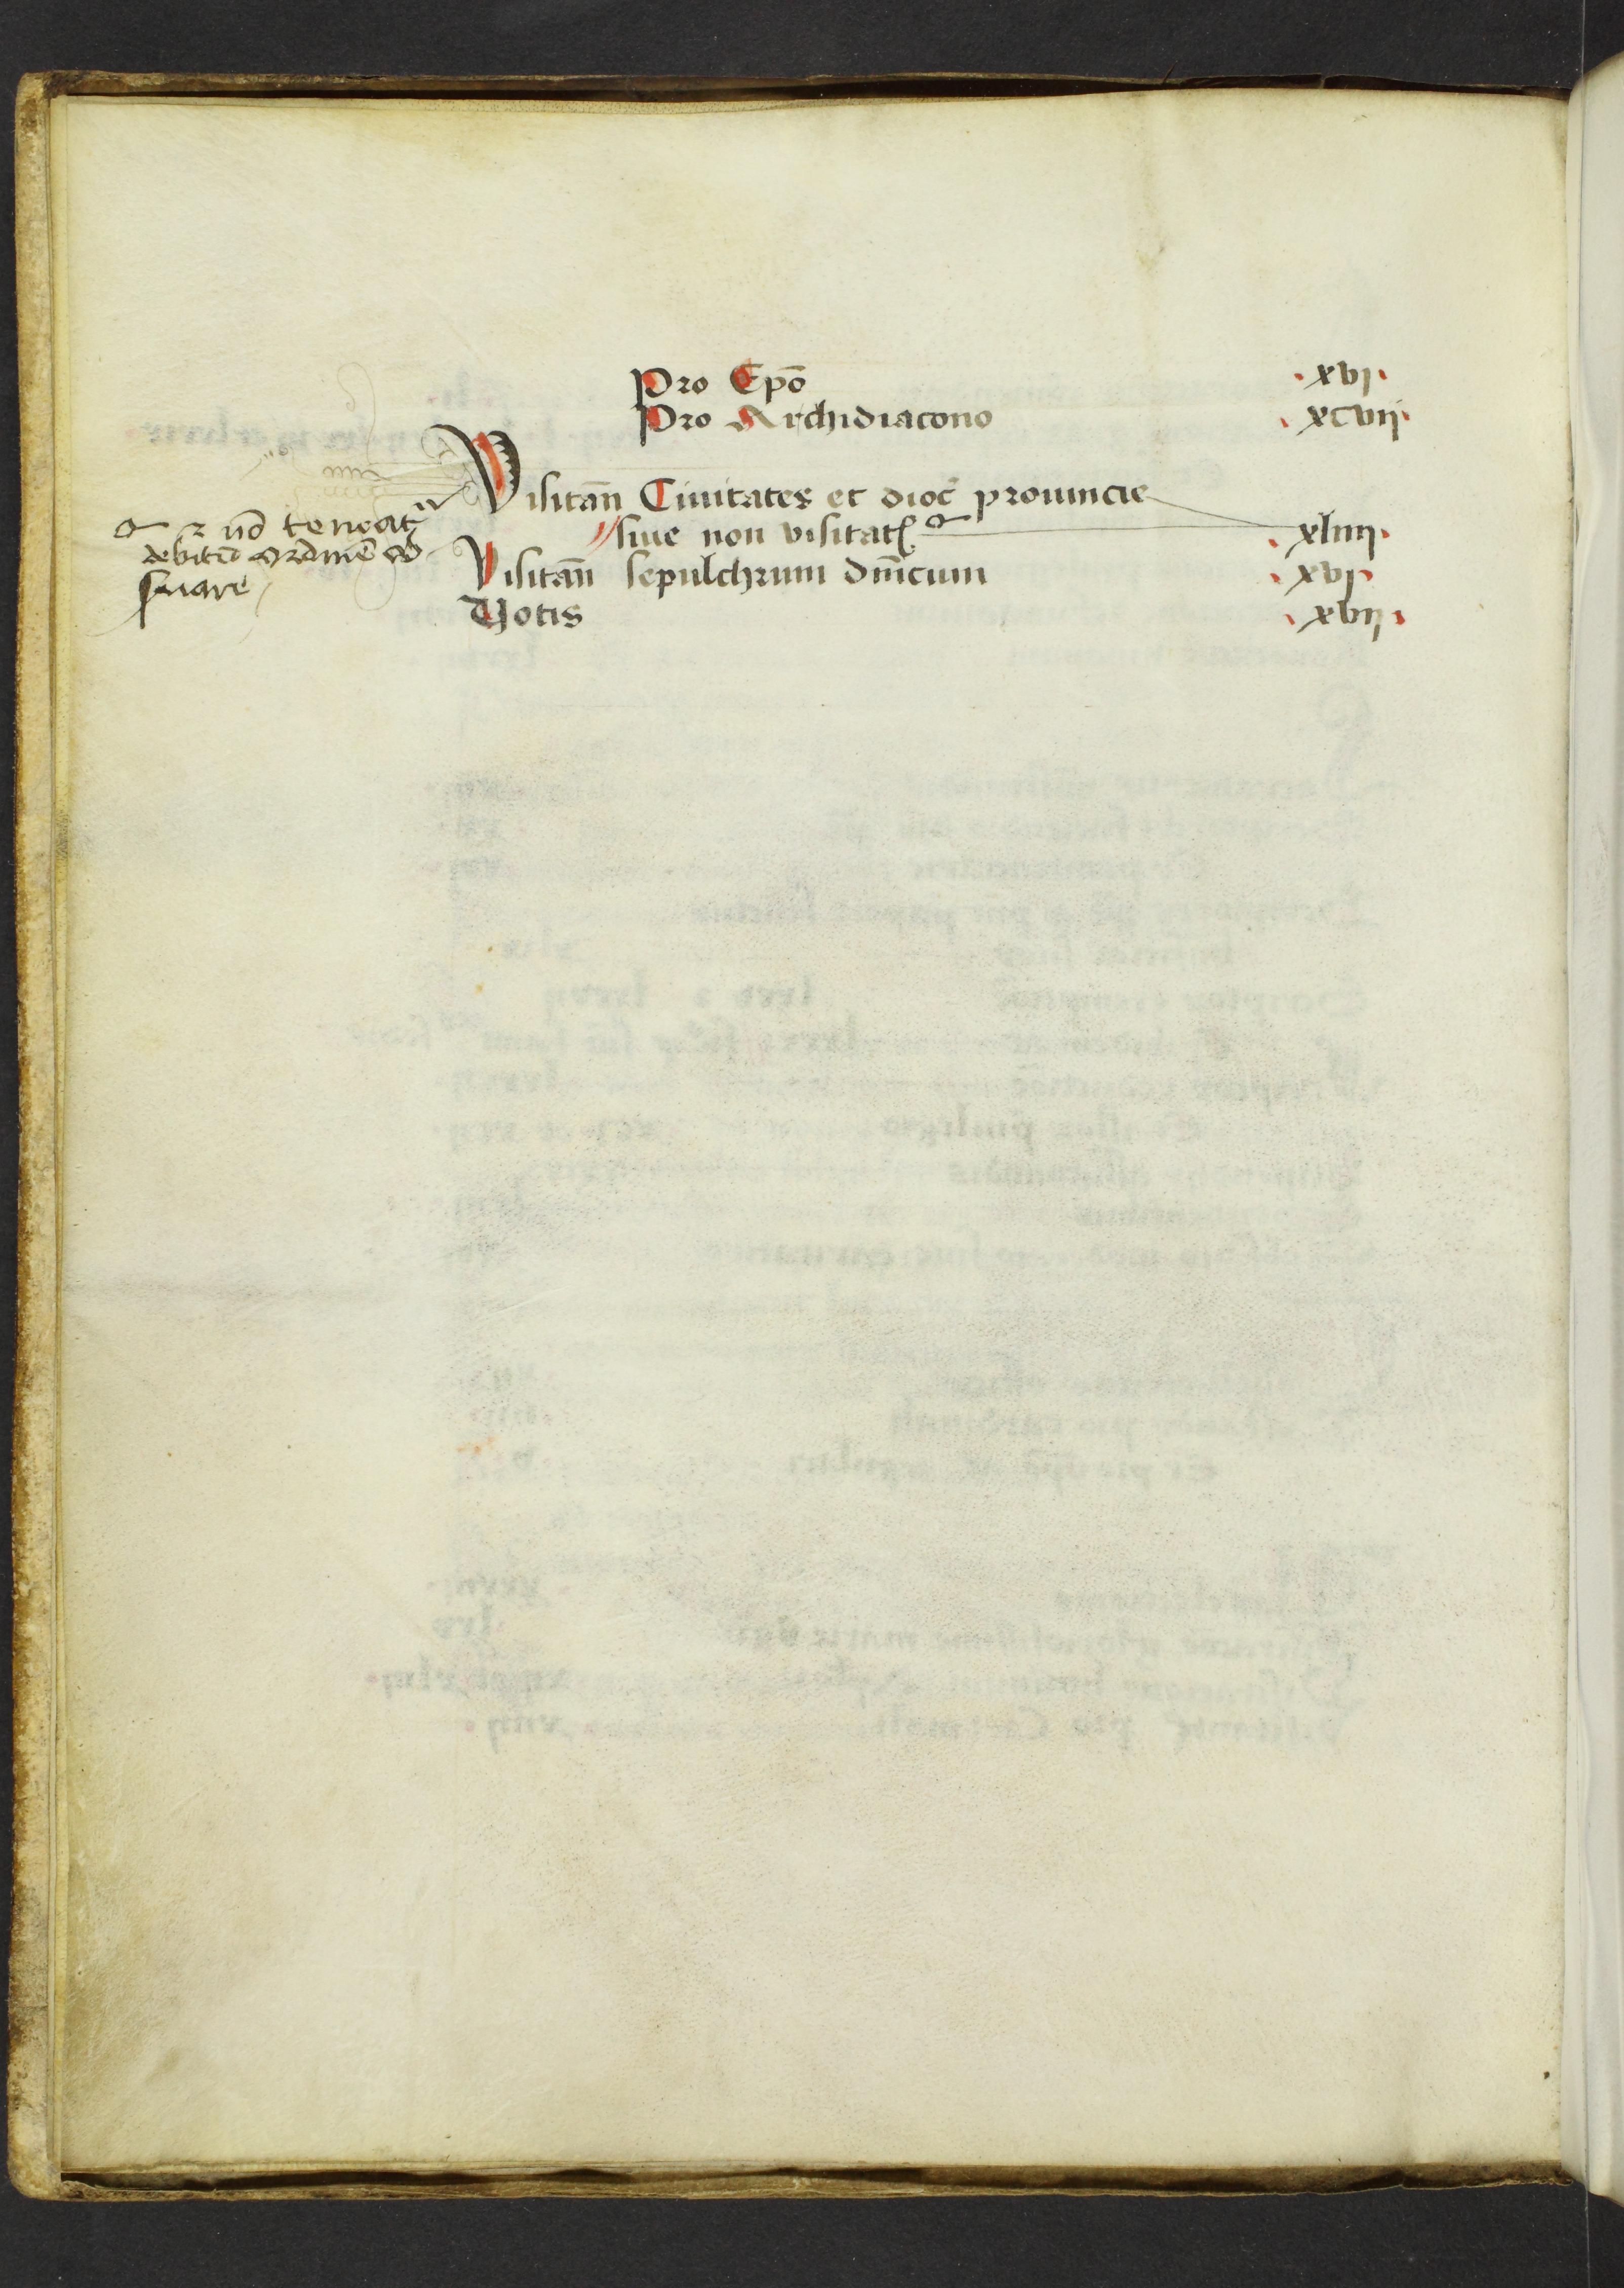 Pro Ep̄o .xvj.
Pro Archidiacono .xcvij.
Visitan̄ Ciuitates et dioc̄ prouincie
siue non visitat .xliiij.
Visitan̄ sepulchrum dn̄icum .xvj.
Votis .xvij.
ꝛ nō teneat
debitū ordinē
s̄uare